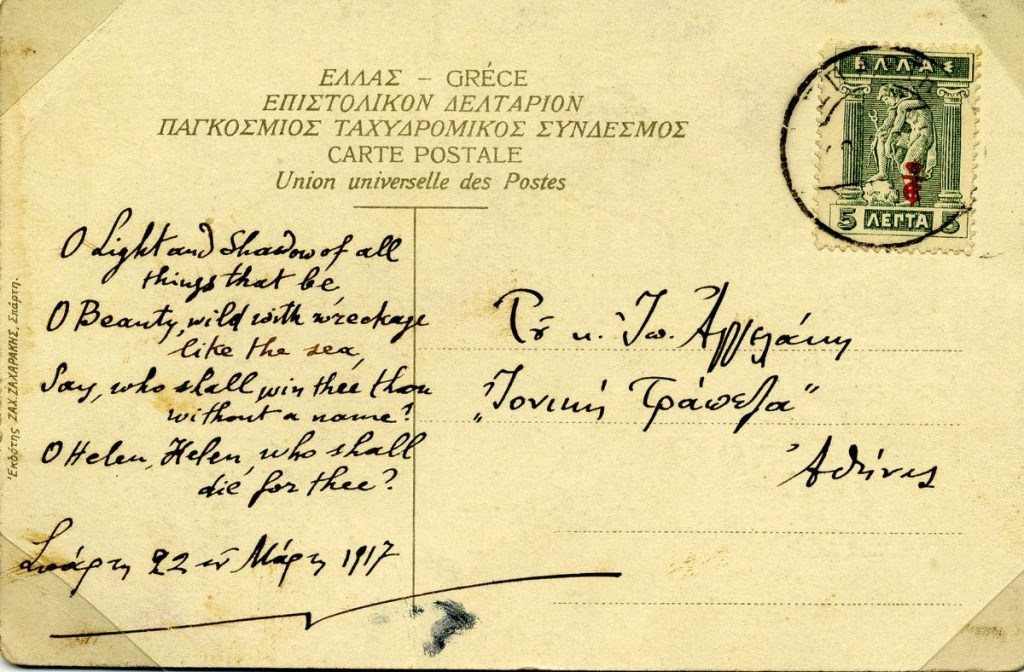 ΕΛΛΑΣ – GRÉCE
ΕΠΙΣΤΟΛΙΚΟΝ ΔΕΛΤΑΡΙΟΝ
ΠΑΓΚΟΣΜΙΟΣ ΤΑΧΥΔΡΟΜΙΚΟΣ ΣΥΝΔΕΣΜΟΣ
CARTE POSTALE
Union universelle des Postes
ΕΛΛΑΣ
5 ΛΕΠΤΑ 5
O Light and Shadow of all
things that be
O Beauty, wild with wreckage
like the sea,
Say, who shall win thee thou
without a name?
O Helen, Helen, who shall
die for thee?
Σπάρτη 22 Μάρτη 1917
κ. Ἀγγελάκη
„Ἰονική Τράπεζα“
Ἀθήνες
Ἐκδότης ΖΑΧ. ΖΑΧΑΡΑΚΗΣ, Σπάρτη.